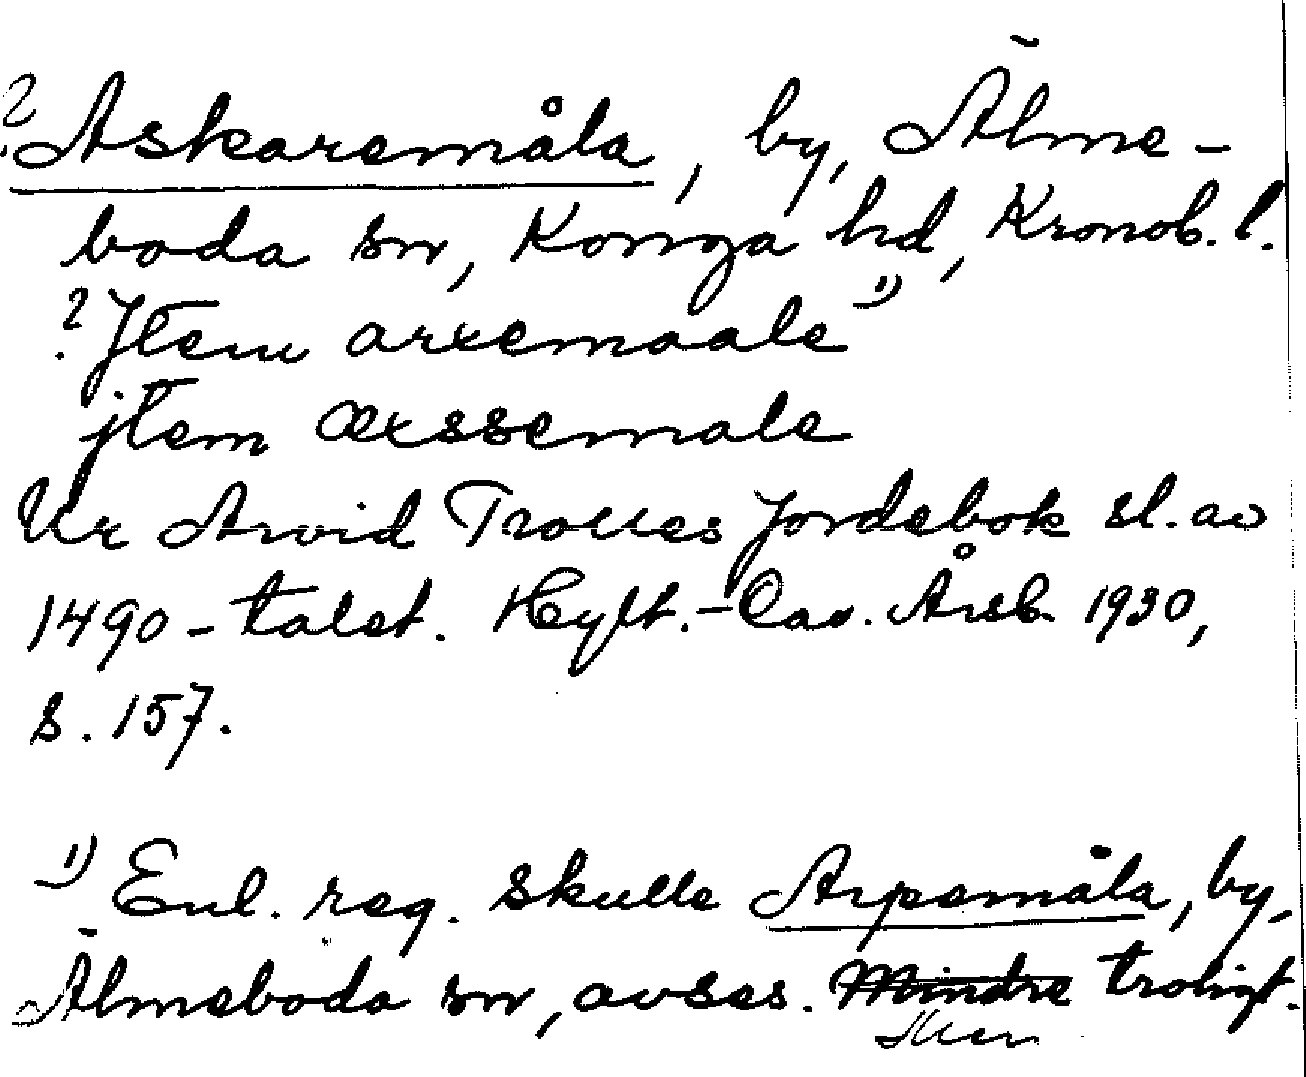 ? Askaremåla, by, Älme-
boda sn, Konga hd, Kronob. l.
? Jtem arxemaale 1)
jtem Œxssemale
Ur Arvid Trolles Jordebok sl. av
1490-talet. Hylt.-Cav. Årsb. 1930,
s. 157.
1) Enl. reg. skulle Arpemåla, by,
Älmeboda sn, avses. Mindre troligt.
Mer